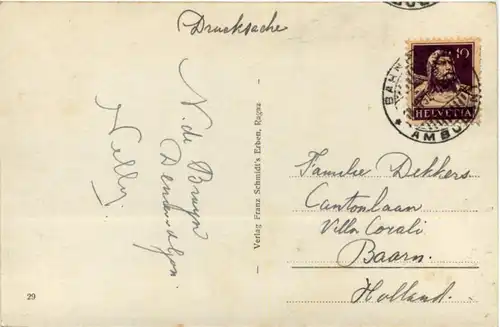 Drucksache
N. de Bruyn
Nelly.
Verlag Franz Schmidt's Erben, Ragaz
29
10
HELVETIA
BAHN
AMBUL
Familie Dekkers
Cantonlaan
Villa Corali
Baarn.
Holland.